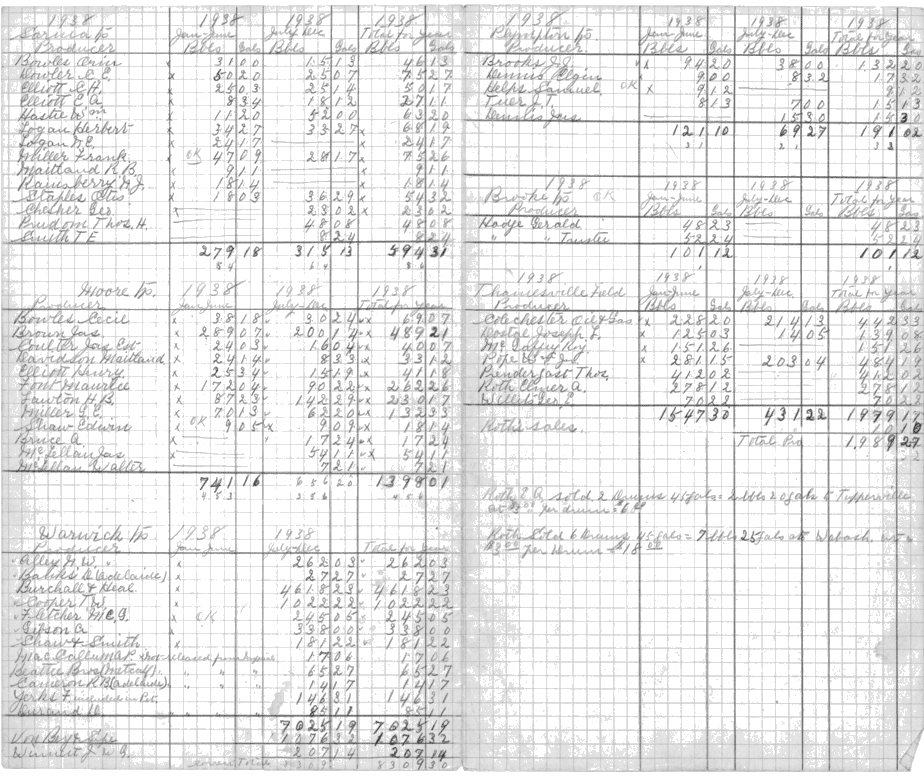 1938 1938 1938 1938
Sarnia Tp Jan-June July-Dec Total for Year
Producer Bbls Gals Bbls Gals Bbls Gals
Bowles Orin x 31 00 15 13 46 13
Dowler S.E. x 50 20 25 07 75 27
Elliott G.H. x 25 03 25 14 50 17
Elliott C.A. x 8 34 18 12 27 11
Hastie Wm x 11 20 52 00 63 20
Logan Herbert x 34 27 33 27 x 68 19
Logan N.E. x 24 17 x 24 17
Miller Frank x OK 47 09 28 17 x 75 26
Maitland R.B. x 9 11 x 9 11
Ramsberry A.J. x 18 14 x 18 14
Staples Otis x 18 03 36 29 x 54 32
Chesher Geo x 23 02 x 23 02
Prudom Thos. H. 48 08 48 08
Smith T E 8 24 8 24
279 18 315 13 594 31
Moore Tp. 1938 1938 1938
Producer Jan-June July-Dec Total for Year
Bowles Cecil x 38 18 30 24 69 07
Brown Jas x 289 07 200 14 489 21
Coulter Jas Est x 24 03 16 04 40 07
Davidson Maitland x 24 14 8 33 33 12
Elliott Henry x 25 34 15 19 41 18
Font Maurice x 172 04 90 22 262 26
Lawton H B x 87 23 142 29 230 17
Miller G.E. x 70 13 62 20 132 33
Shaw Edwin x OK 9 05 x 9 09 18 14
Bruce A. 17 24 x 17 24
McLellan Jas 54 11 x 54 11
McLellan Walter 7 21 7 21
741 16 656 20 1398 01
Warwick Tp 1938 1938
Producer Jan-June July-Dec Total for Year
Alley H.W. x 262 03 262 03
Banks D (Adelaide) x 27 27 27 27
Burchall & Heal x 4618 23 4618 23
Cooper T W x 1022 22 1022 22
Fletcher McG. x OK 245 05 245 05
Gibson A x 338 00 338 00
Shaw & Smith x 181 22 181 22
MacCallum A.P. 17 06 17 06
Beattie Bros (Metcalf) " " " 65 27 65 27
Cameron R B (Adelaide) " " " 14 17 14 17
Yerks F included in Pet. 146 31 146 31
Durand D " " " 85 11 85 11
7025 19 7025 19
1076 32 1076 32
207 14 207 14
8309 30
1938 1938 1938 1938
Plympton Tp Jan-June July-Dec Total for Year
Producer Bbls Gals Bbls Gals Bbls Gals
Brooks J.J. x 94 20 38 00 132 20
Dennis Elgin x 9 00 8 32 17 32
Helps Samuel OK x 9 12 9 12
Tuer J.T. 8 13 7 00 15 13
15 30 15 30
121 10 69 27 191 02
1938 1938 1938 1938
Brooke Tp OK Jan-June July-Dec Total for Year
Producer Bbls Gals Bbls Gals Bbls Gals
Hodge Gerald 48 23 48 23
" " Trustee 52 24 52 24
101 12 101 12
1938 1938 1938 1938
Thamesville Field Jan-June July-Dec Total for Year
Producer Bbls Gals Bbls Gals Bbls Gals
Colchester Oil & Gas x 228 20 214 13 442 33
Dostal Joseph L. x 125 03 14 05 139 08
McCaffey Roy x 151 26 151 26
x 281 15 203 04 484 19
Prendergast Thos. 412 02 412 02
Roth Elmer A. 278 12 278 12
Willits Geo. E 70 22 70 22
1547 30 431 22 1979 17
Roths sales. 10 10
Total Pro 1989 27
Roth E A sold 2 Drums 45 gals = 2 bbls 20 gals to Tupperville
at $3.00 per drum = $6.00
Roth Sold 6 Drums 45 gals = 7 bbls 25 gals at Wabash at
$3.00 per drum $18.00